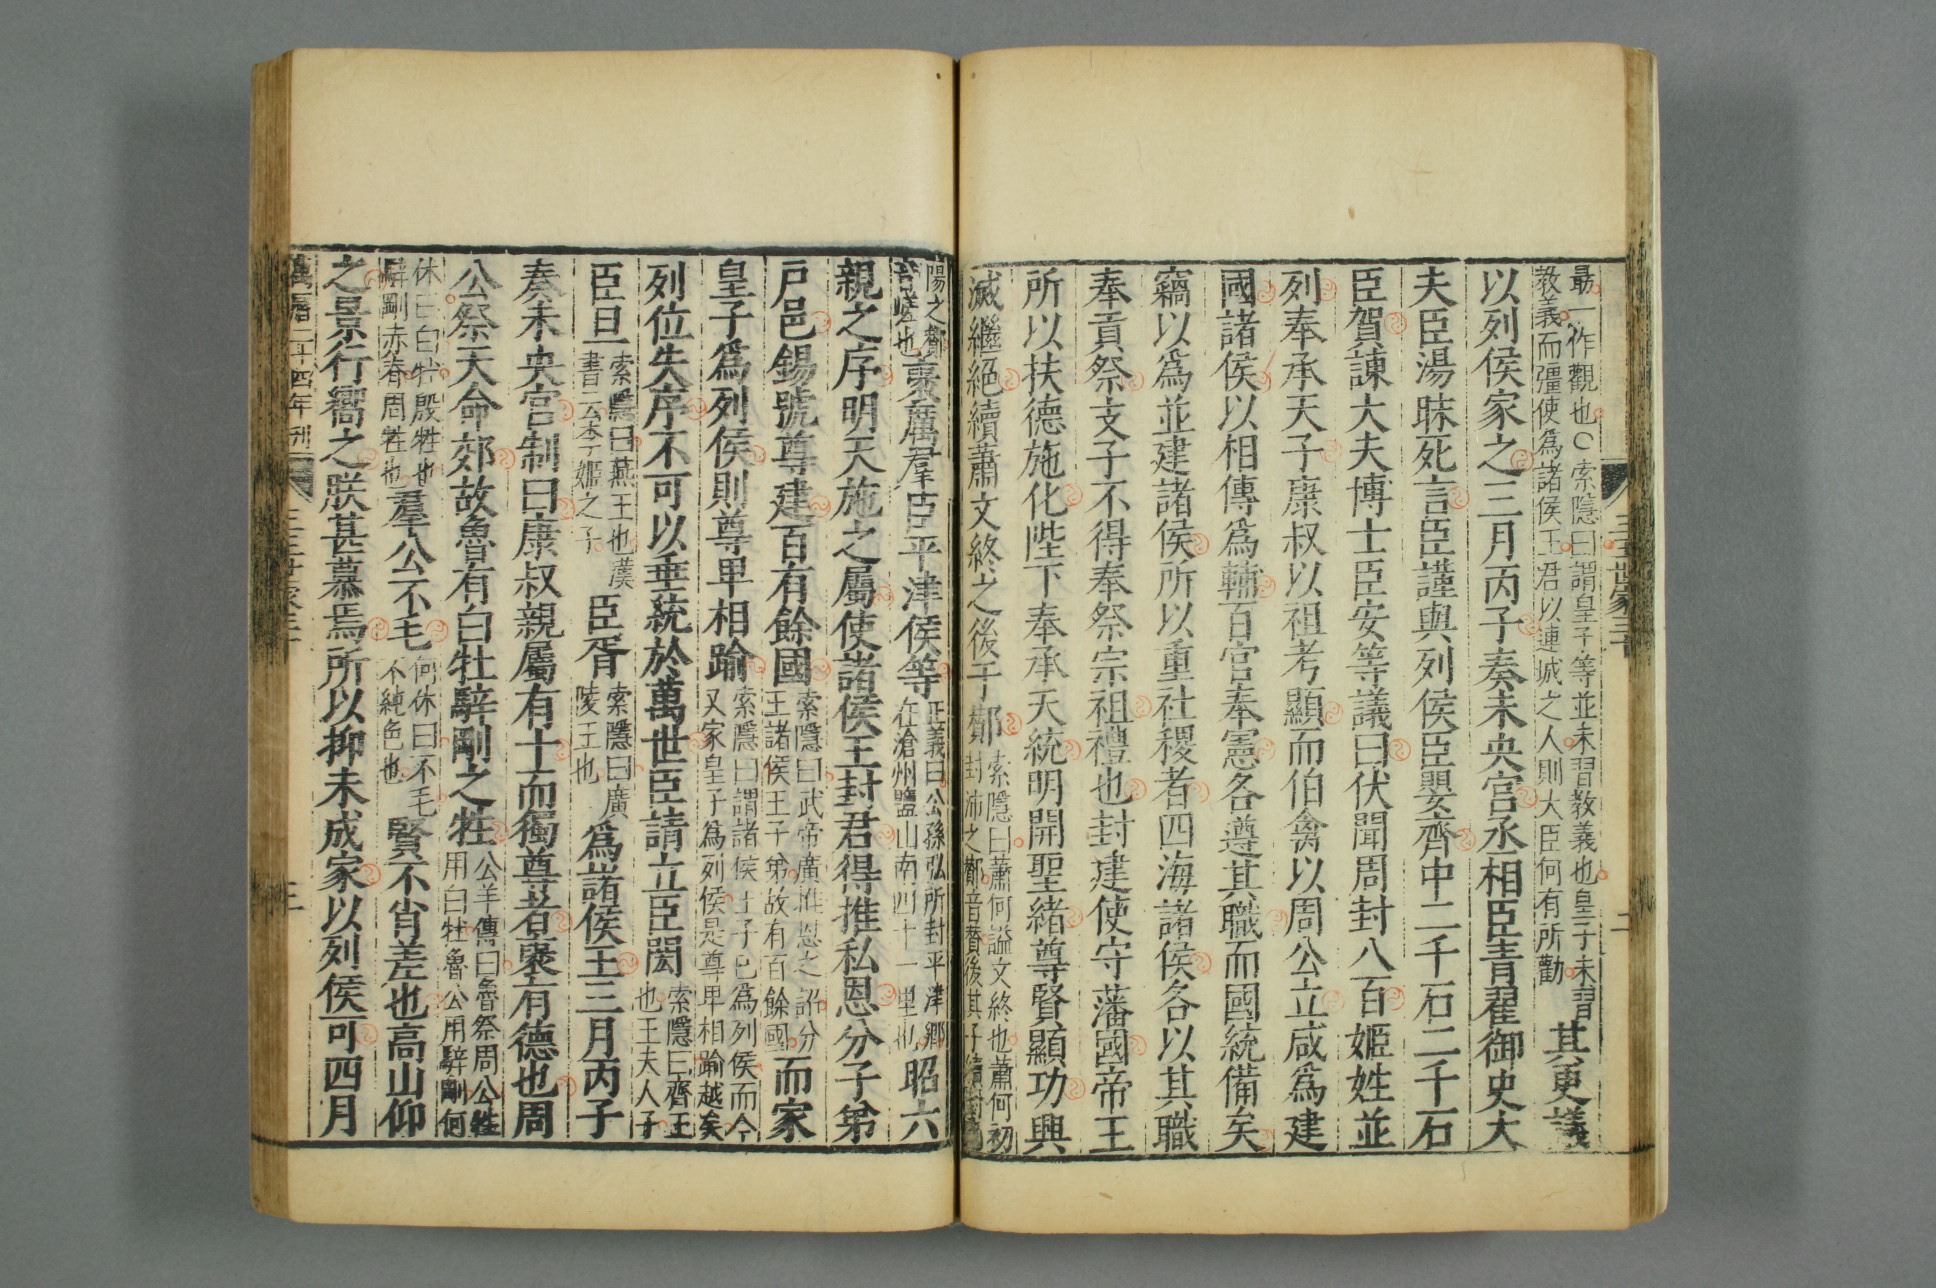 最一作觀也○索隱曰謂皇子等並未習教義也皇子未習
教義而彊使爲諸侯王君以連城之人則大臣何有所勸
其更議
以列侯家之三月丙子奏未央宮丞相臣青翟御史大
夫臣湯昧死言臣謹與列侯臣嬰齊中二千石二千石
臣賀諫大夫博士臣安等議曰伏聞周封八百姬姓並
列奉承天子康叔以祖考顯而伯禽以周公立咸爲建
國諸侯以相傅爲輔百官奉憲各遵其職而國統備矣
竊以爲並建諸侯所以重社稷者四海諸侯各以其職
奉貢祭支子不得奉祭宗祖禮也封建使守藩國帝王
所以扶德施化陛下奉承天統明開聖緒尊賢顯功興
滅繼絕續蕭文終之後于酇
索隱曰蕭何謚文終也蕭何初
封沛之酇音贊後其子續封南
三王世家三十
二
陽之酇
音嵯也
襃厲羣臣平津侯等
正義曰公孫弘所封平津鄉
在滄州鹽山南四十二里也
昭六
親之序明天施之屬使諸侯王封君得推私恩分子弟
戶邑錫號尊建百有餘國
索隱曰武帝廣推恩之詔分
王諸侯王子弟故有百餘國
而家
皇子爲列侯則尊卑相踰
索隱曰謂諸侯王子已爲列侯而今
又家皇子爲列侯是尊卑相踰越矣
列位失序不可以垂統於萬世臣請立臣閎
索隱曰齊王
也王夫人子
臣旦
索隱曰燕王也漢
書云李姬之子
臣胥
索隱曰廣
陵王也
爲諸侯王三月丙子
奏未央宮制曰康叔親屬有十而獨尊者襃有德也周
公祭天命郊故魯有白牡騂剛之牲
公羊傳曰魯祭周公牲
用白牡魯公用騂剛何
休曰白牡殷牲也
騂剛赤脊周牲也
羣公不毛
何休曰不毛
不純色也
賢不肖差也高山仰
之景行嚮之朕甚慕焉所以抑未成家以列侯可四月
萬曆二十四年刊
三王世家三十
三